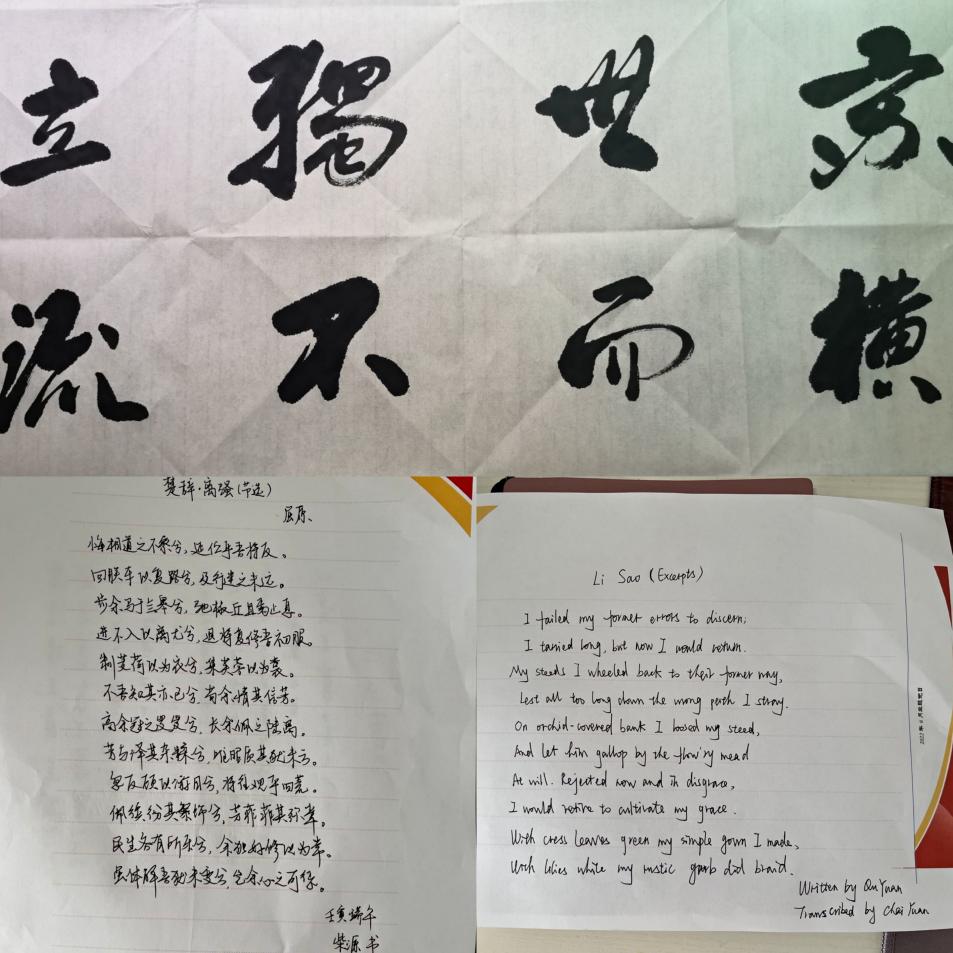 苏世獨立
横而不流
楚辞·离骚(节选)
屈原
悔相道之不察兮,延伫乎吾将反。
回朕车以复路兮,及行迷之未远。
步余马于兰皋兮,驰椒丘且焉止息。
进不入以离尤兮,退将复修吾初服。
制芰荷以为衣兮,集芙蓉以为裳。
不吾知其亦已兮,苟余情其信芳。
高余冠之岌岌兮,长余佩之陆离。
芳与泽其杂糅兮,唯昭质其犹未亏。
忽反顾以游目兮,将往观乎四荒。
佩缤纷其繁饰兮,芳菲菲其弥章。
民生各有所乐兮,余独好修以为常。
虽体解吾犹未变兮,岂余心之可惩。
壬寅端午
柴源 书
Li Sao (Excerpts)
I failed my former errors to discern;
I tarried long, but now I would return.
My steeds I wheeled back to their former way,
Lest all too long down the wrong path I stray.
On orchid-covered bank I loosed my steed,
And let him gallop by the flow'ry mead
At will. Rejected now and in disgrace,
I would retire to cultivate my grace.
With cress leaves green my simple gown I made,
With lilies white my rustic garb did braid.
Written by Qu Yuan
Transcribed by Chai Yuan
2022年6月主题党日